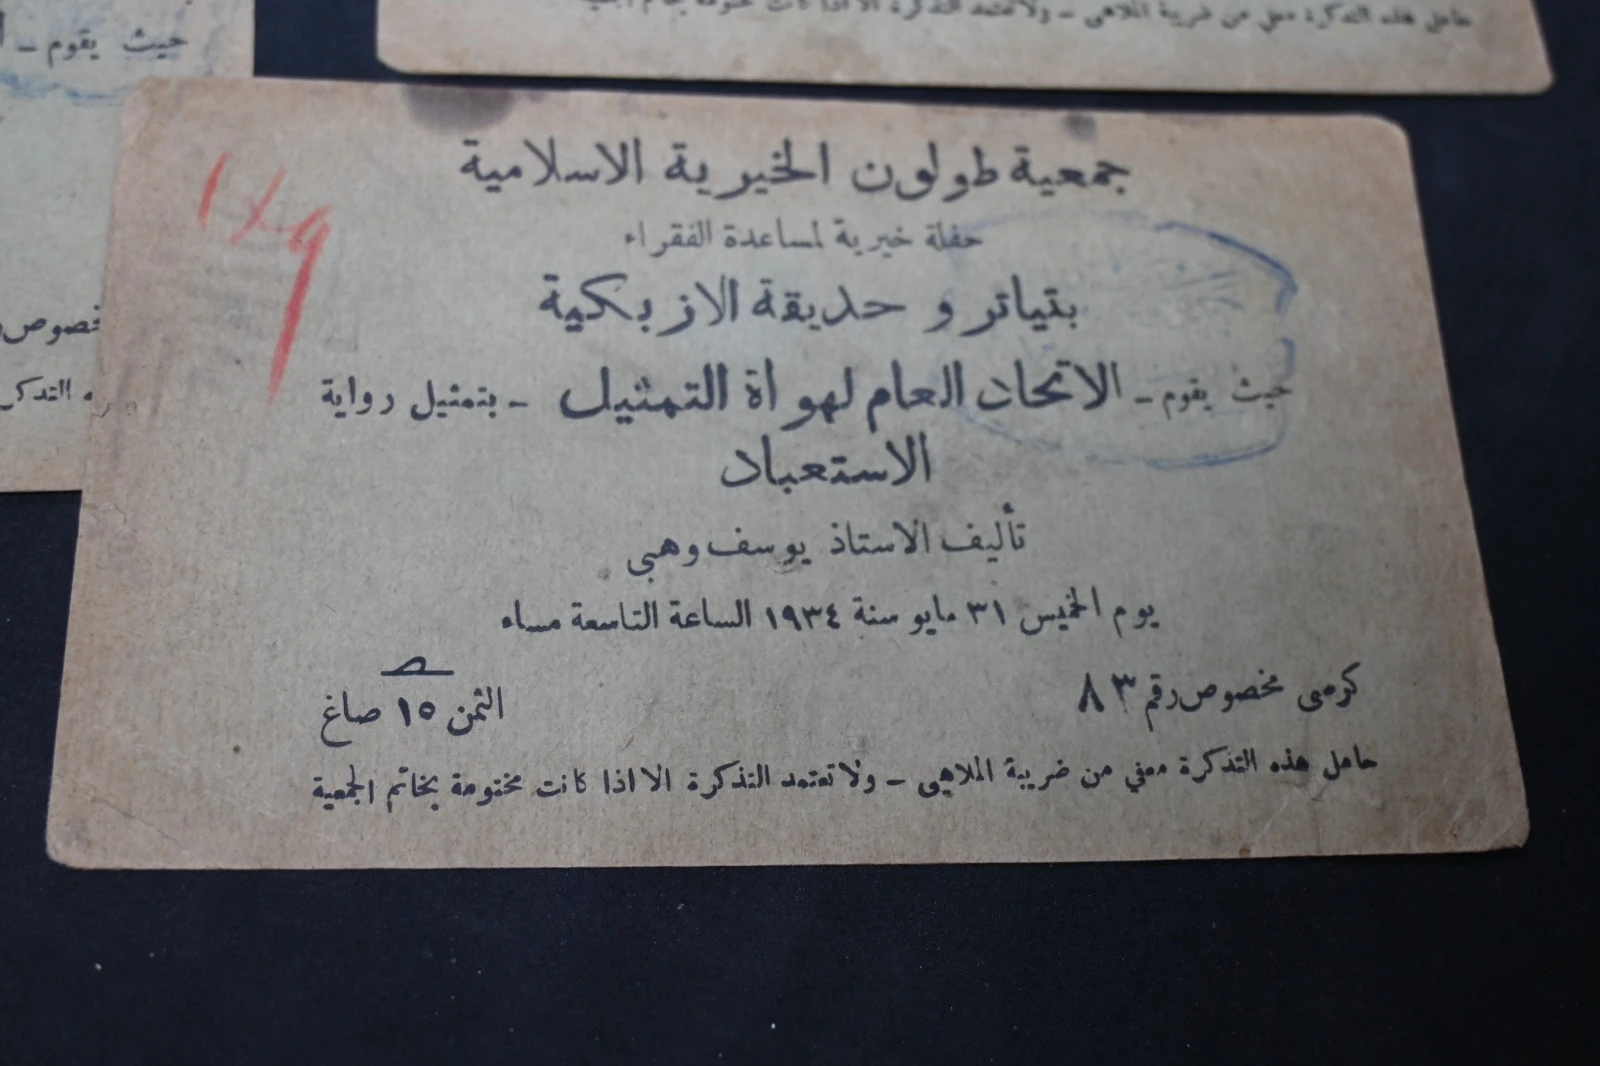 حامل هذه التذكرة معفي من ضريبة الملاهي - ولا تعتمد التذكرة الا اذا كانت مختومة بخاتم الجمعية
حيث يقوم -
خصوص
ه التذكر
جمعية طولون الخيرية الاسلامية
حفلة خيرية لمساعدة الفقراء
بتياترو حديقة الازبكية
حيث يقوم - الاتحاد العام لهواة التمثيل - بتمثيل رواية
الاستعباد
تأليف الاستاذ يوسف وهبى
يوم الخميس ٣١ مايو سنة ١٩٣٤ الساعة التاسعة مساء
كرسى مخصوص رقم ٨٣
الثمن ١٥ صاغ
حامل هذه التذكرة معفي من ضريبة الملاهى - ولا تعتمد التذكرة الا اذا كانت مختومة بخاتم الجمعية